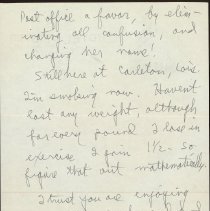 Post office a favor, by elim-
inating all confusion, and
changing her name!
Still here at Carleton, Lois
I'm smoking now. Haven't
lost any weight, although
for every pound I lose in
exercise I gain 1½ - So,
figure that out mathematically.
I trust you are enjoying